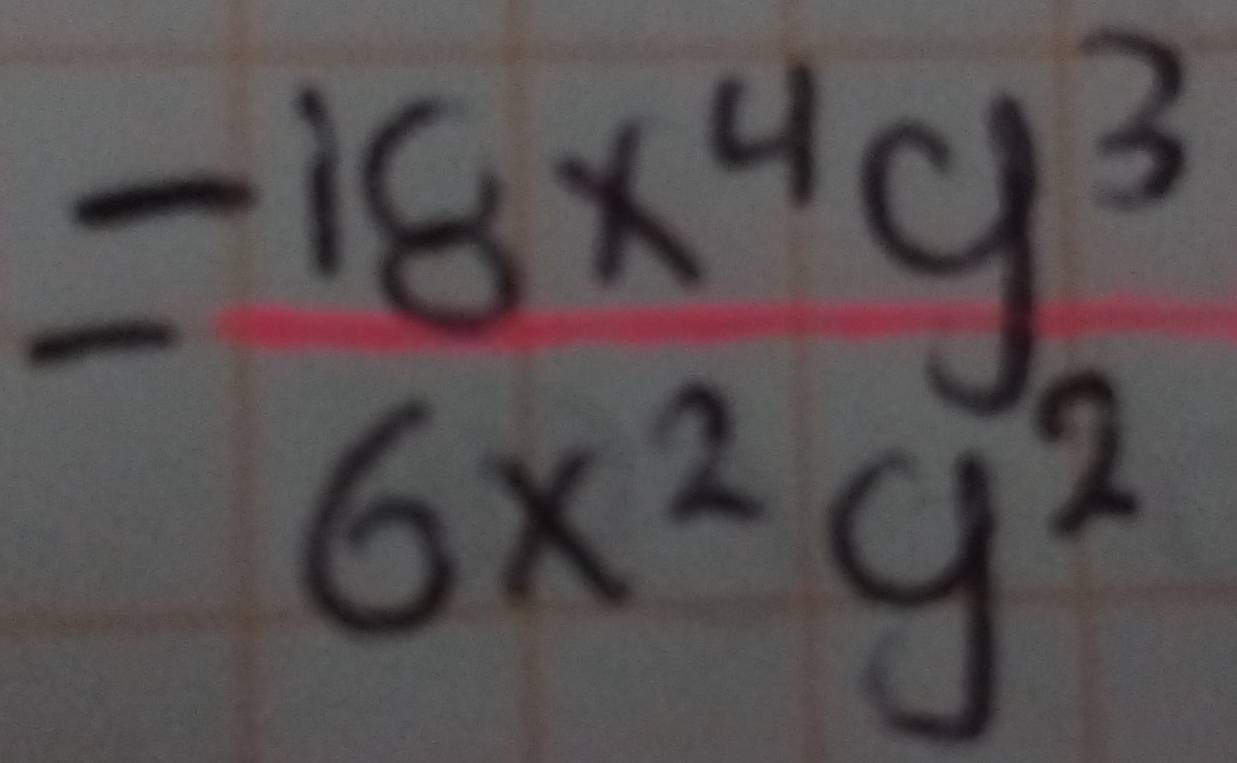 -18x⁴y³
-
6x²y²